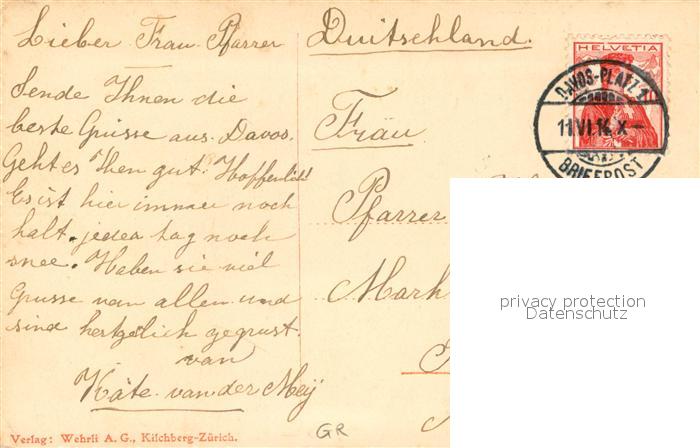 Lieber Frau Pfarrer
Sende Ihnen die
beste Grüsse aus Davos.
Geht es Ihen gut. Hoffenlich
Es ist hier immer noch
halt. jeder tag noch
snee. Haben sie viel
Grusse van allen und
sind hertzelich gegrust.
van
Käte van der Meij
Verlag: Wehrli A. G., Kilchberg-Zürich.
GR
Duitschland.
Fräu
Pfarrer
Mark
HELVETIA
DAVOS-PLATZ 1
11.VI.14.X-
BRIEFPOST
privacy protection
Datenschutz